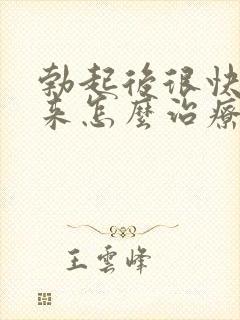 勃起後很快
来怎麼治療
王雲峰